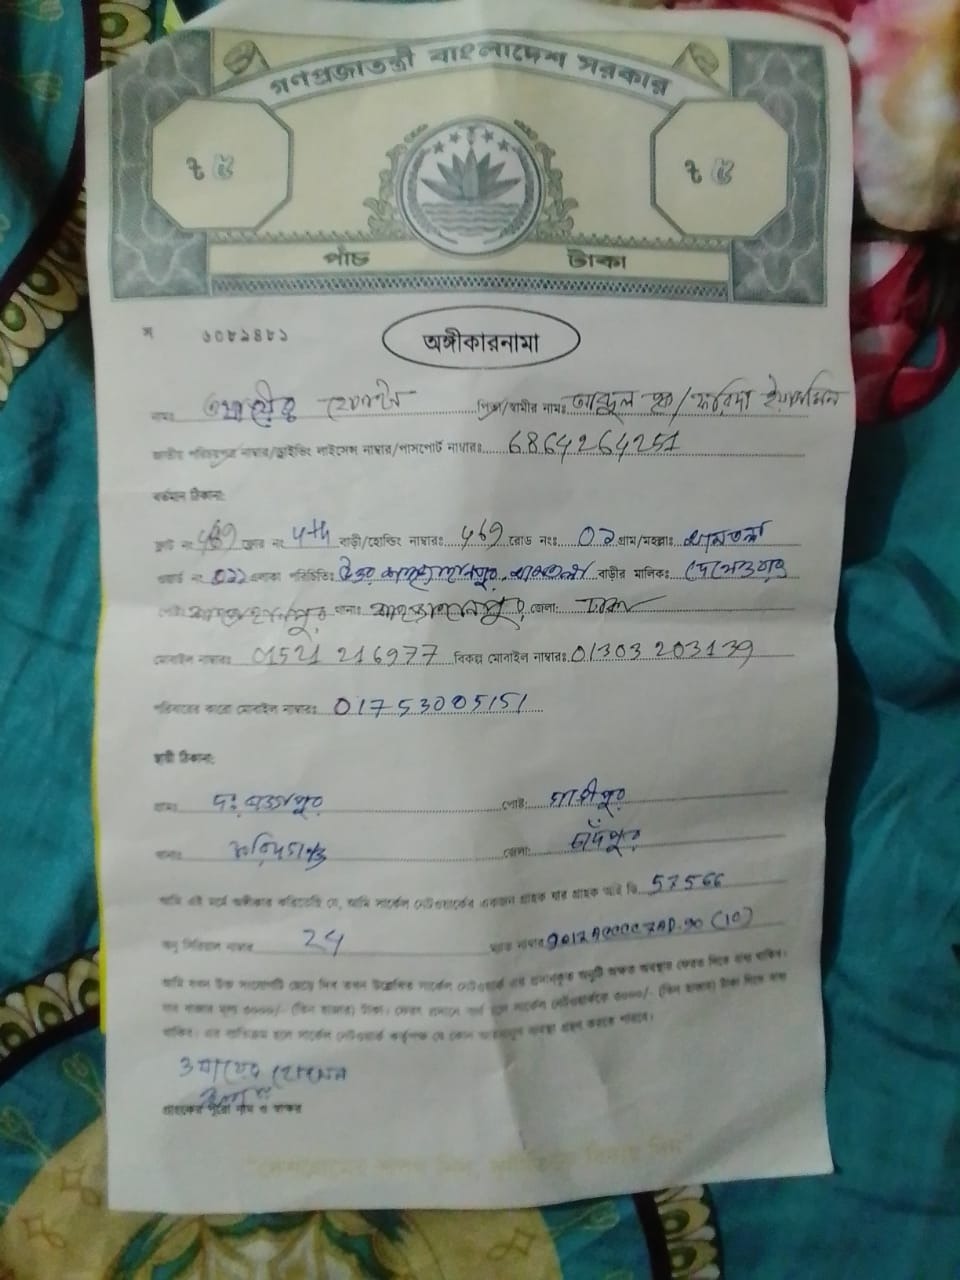 গণপ্রজাতন্ত্রী বাংলাদেশ সরকার
৳ ৫ ৳ ৫
পাঁচ টাকা
স ৬০৮৯৪৮৯
অঙ্গীকারনামা
নামঃ হোসেন পিতা/স্বামীর নামঃ আব্দুল হক/ফরিদা ইয়াসমিন
জাতীয় পরিচয়পত্র নাম্বার/ড্রাইভিং লাইসেন্স নাম্বার/পাসপোর্ট নাম্বারঃ 6864264251
বর্তমান ঠিকানা:
ফ্লাট নং ফ্লোর নং 4th বাড়ী/হোল্ডিং নাম্বারঃ রোড নংঃ ০২ গ্রাম/মহল্লাঃ
ওয়ার্ড নং এলাকা পরিচিতিঃ উত্তর শাহজাহানপুর, বাড়ীর মালিকঃ
পোষ্টঃ শাহজাহানপুর থানাঃ শাহজাহানপুর জেলা: ঢাকা
মোবাইল নাম্বারঃ 01521 216977 বিকল্প মোবাইল নাম্বারঃ 01303 203139
পরিবারের কারো মোবাইল নাম্বারঃ 01753005151
স্থায়ী ঠিকানা:
গ্রামঃ পোষ্ট: গাজীপুর
থানাঃ ফরিদগঞ্জ জেলা: চাঁদপুর
আমি এই মর্মে অঙ্গীকার করিতেছি যে, আমি সার্কেল নেটওয়ার্কের একজন গ্রাহক যার গ্রাহক আই ডি 57566
অনু সিরিয়াল নাম্বার 24 ম্যাক নাম্বার
আমি যখন উক্ত সংযোগটি ছেড়ে দিব তখন উল্লেখিত সার্কেল নেটওয়ার্ক এর প্রদানকৃত অনুটি অক্ষত অবস্থায় ফেরত দিতে বাধ্য থাকিব।
যার বাজার মূল্য ৩০০০/- (তিন হাজার) টাকা। ফেরত প্রদানে ব্যর্থ হলে সার্কেল নেটওয়ার্ককে ৩০০০/- (তিন হাজার) টাকা দিতে বাধ্য
থাকিব। এর ব্যতিক্রম হলে সার্কেল নেটওয়ার্ক কর্তৃপক্ষ যে কোন আইনানুগ ব্যবস্থা গ্রহণ করতে পারবে।
হোসেন
গ্রাহকের পুরো নাম ও স্বাক্ষর